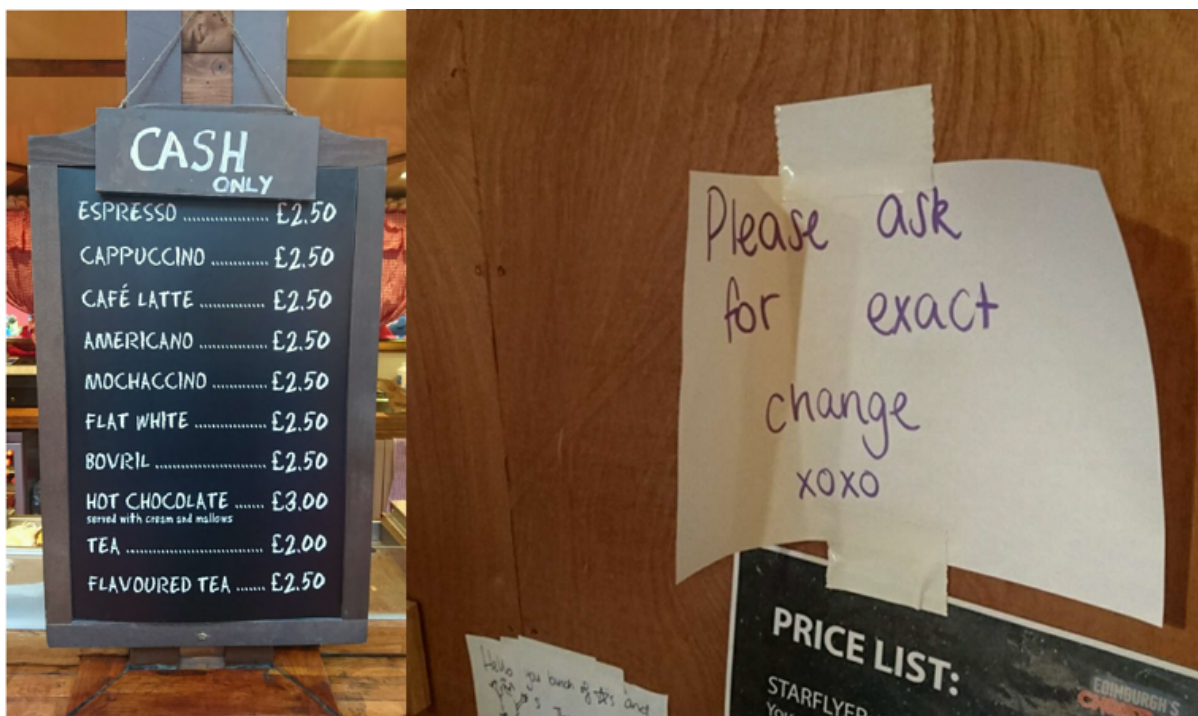 CASH
ONLY
ESPRESSO .................... £2.50
CAPPUCCINO ............. £2.50
CAFÉ LATTE ............... £2.50
AMERICANO ............... £2.50
MOCHACCINO ............ £2.50
FLAT WHITE ................ £2.50
BOVRIL ......................... £2.50
HOT CHOCOLATE ...... £3.00
served with cream and mallows
TEA ................................ £2.00
FLAVOURED TEA ....... £2.50
Please ask
for exact
change
xoxo
Hello you bunch of and
PRICE LIST:
STARFLYER
You
EDINBURGH'S